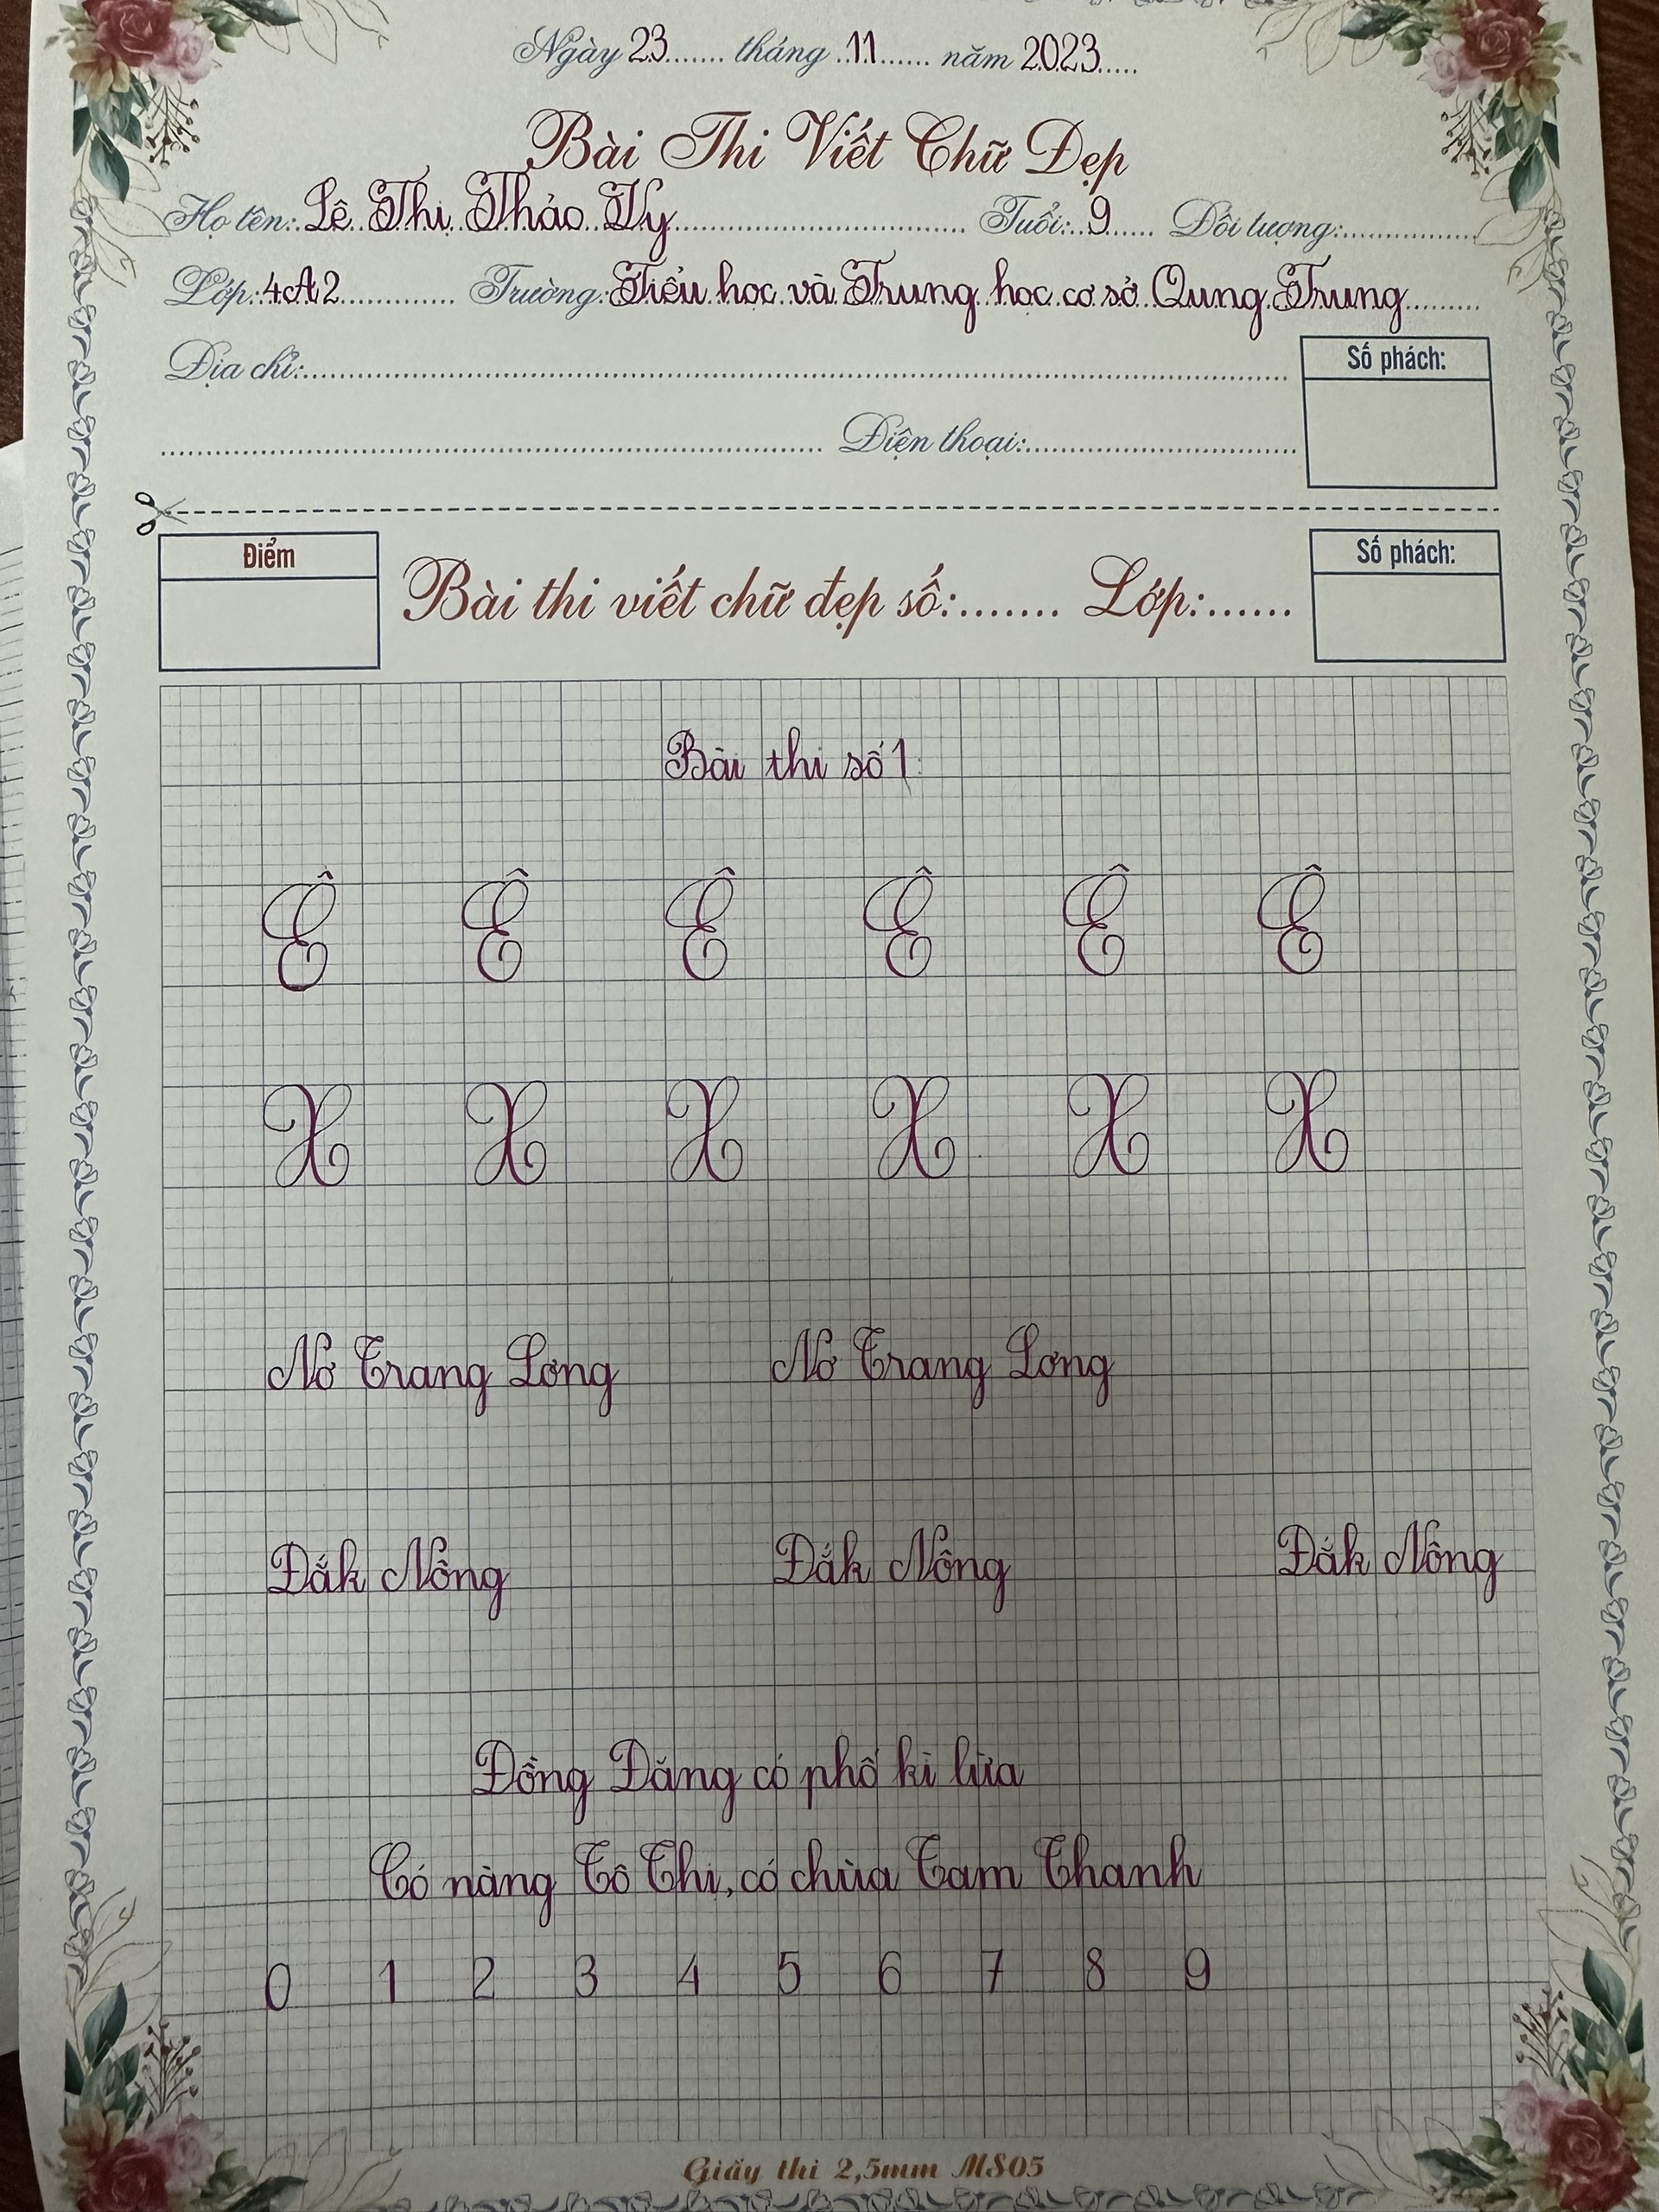 Ngày 23 tháng 11 năm 2023
Bài Thi Viết Chữ Đẹp
Họ tên: Lê Thị Thảo Vy Tuổi: 9 Đối tượng:
Lớp: 4A2 Trường: Tiểu học và Trung học cơ sở Qung Trung
Địa chỉ:
Số phách:
Điện thoại:
Điểm
Bài thi viết chữ đẹp số: Lớp:
Số phách:
Bài thi số 1:
Ê Ê Ê Ê Ê Ê
X X X X X X
Nơ Trang Lơng Nơ Trang Lơng
Đắk Nông Đắk Nông Đắk Nông
Đồng Đăng có phố kì lừa
Có nàng Tô Thị, có chùa Tam Thanh
0 1 2 3 4 5 6 7 8 9
Giấy thi 2,5mm MS05